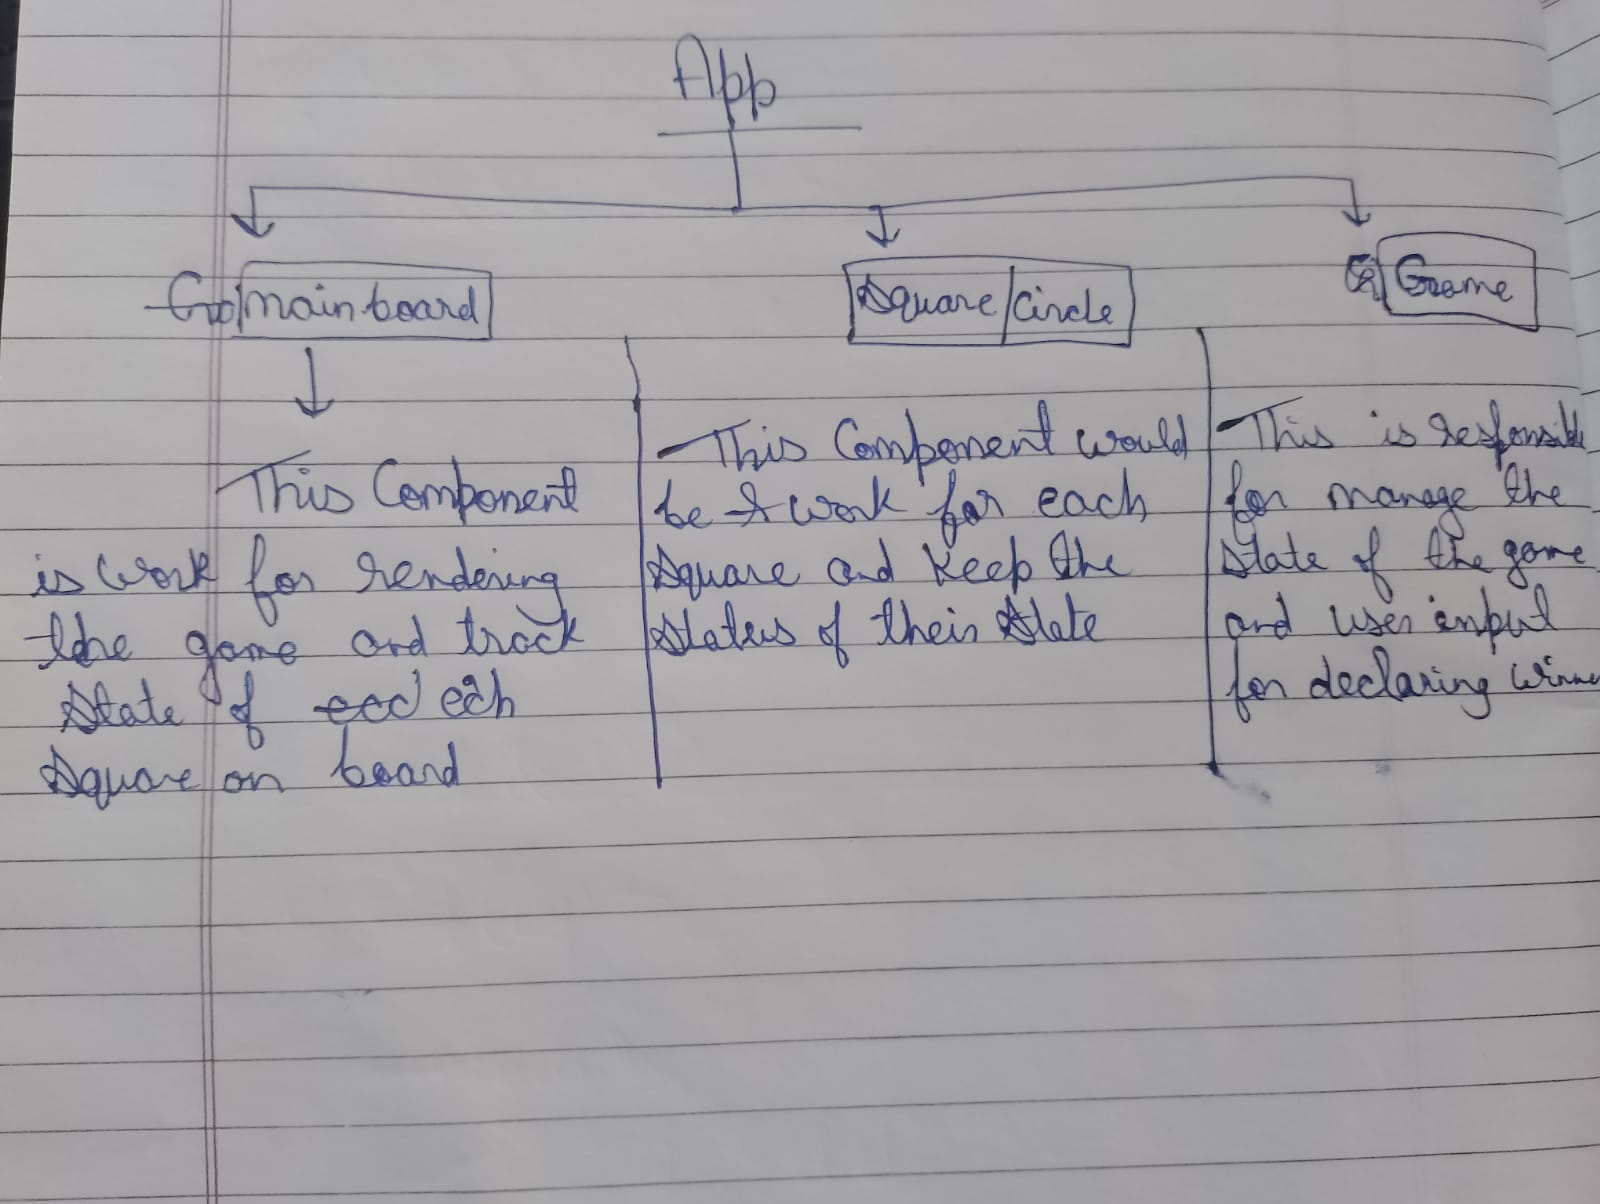 App
main board
Square/Circle
Game
This Component
is work for rendering
the game and track
State of each
Square on board
This Component would
be work for each
Square and keep the
States of their State
This is responsible
for manage the
State of the game
and user input
for declaring winner